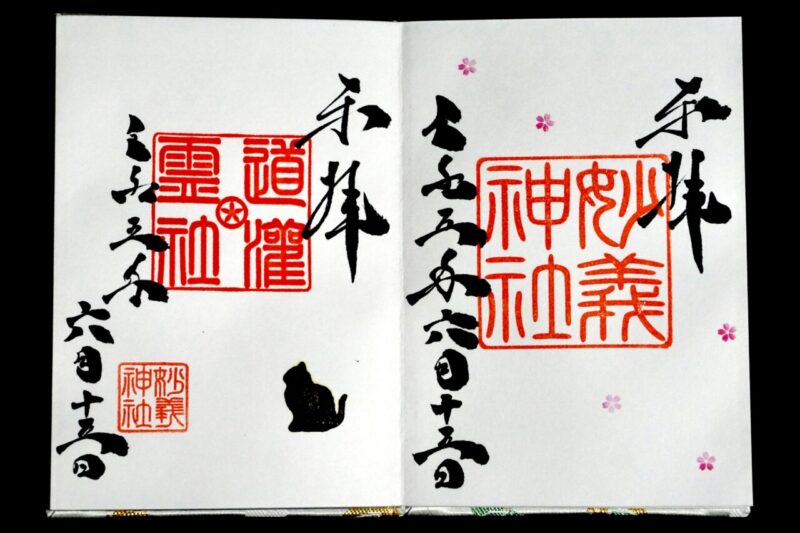 奉拝
妙義
神社
令和五年六月十五日
奉拝
道灌
霊社
令和五年六月十五日
妙義
神社